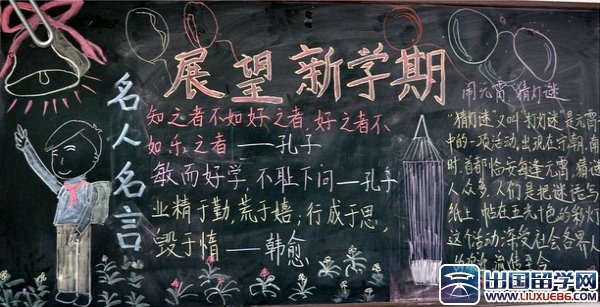 展望新学期
名人名言
知之者不如好之者,好之者不
如乐之者——孔子
敏而好学,不耻下问——孔子
业精于勤,荒于嬉;行成于思,
毁于惰——韩愈
闹元宵 猜灯谜
猜灯谜,又叫打灯谜是元宵
中的一项活动,出现在宋朝.南
时,首都临安每逢元宵,猜谜
人众多,人们是把谜语写
纸上,帖在五光十色的彩灯
这个活动深受社会各界人
出国留学网
LIUXUE86.COM